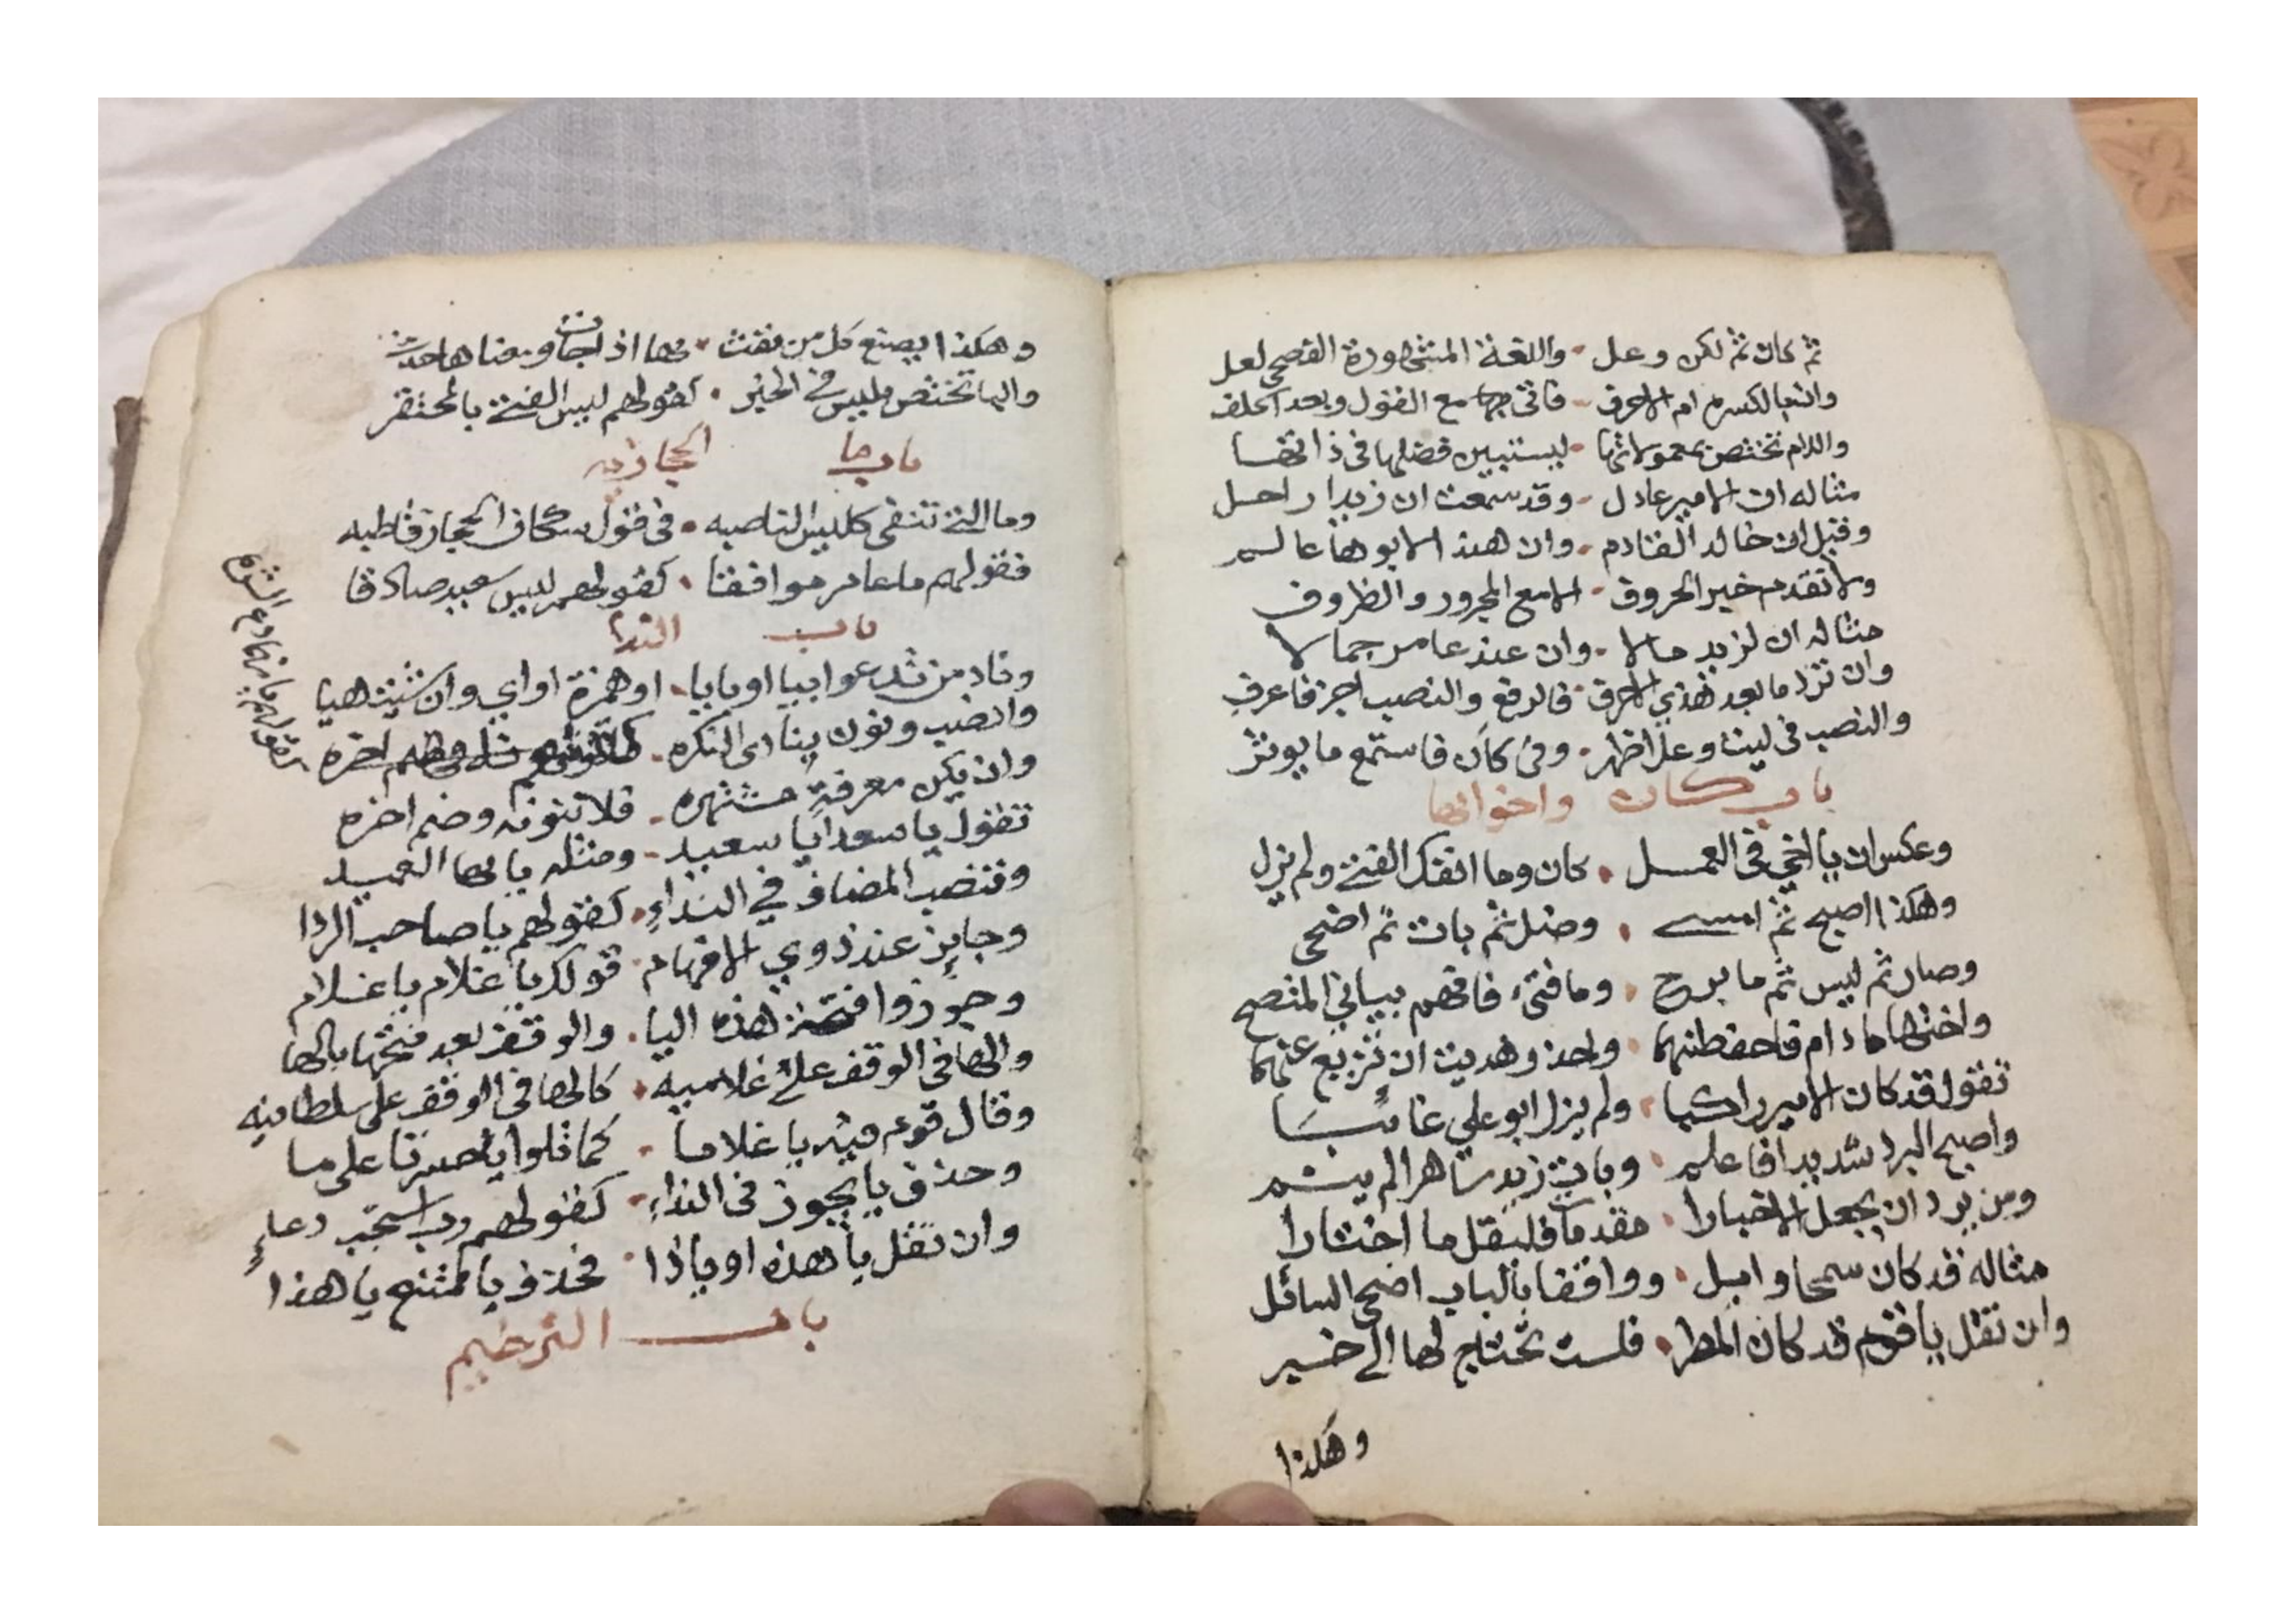 ثم كان ثم لكن وعل . واللغة المشهورة الفصحى لعل
وان بالكسرة ام الاحرف . فاتى بها مع القول وبعد الحلف
واللام تختص بمعمولاتها . ليستبين فضلها في ذاتها
مثاله ان الامير عادل . وقد سمعت ان زيدا راحل
وقيل ان خالد القادم . وان هند الابوها عالم
ولا تقدم خبر الحروف . الا مع المجرور والظروف
مثاله ان لزيد مالا . وان عند عامر جمالا
وان تزد ما بعد هذي الاحرف . فالرفع والنصب اجز فاعرف
والنصب في ليت وعل اظهر . وفي كان فاستمع ما يوثر
باب كان واخواتها
وعكس ان يا اخي في العمل . كان وما انفك الفتى ولم يزل
وهكذا اصبح ثم امسى . وضل ثم بات ثم اضحى
وصار ثم ليس ثم ما برح . وما فتئ فافهم بياني المتضح
واختها ما دام فاحفظنها . واحذر هديت ان تزيغ عنها
تقول قد كان الامير راكبا . ولم يزل ابو علي غائبا
واصبح البرد شديدا فاعلم . وبات زيد ساهرا لم ينم
ومن يرد ان يجعل الاخبارا . مقدمات فليقل ما اختارا
مثاله قد كان سمحا وايل . وواقفا بالباب اضحى السائل
وان تقل يا قوم قد كان المطر . فلست تحتاج لها الى خبر
وهكذا
وهكذا يصنع كل من نفث . بها اذا جات ومعناها حدث
والبا تختص بليس في الخبر . كقولهم ليس الفتى بالمحتقر
باب ما الحجازيه
وما التي تنفي كليس الناصبه . في قول سكان الحجاز قاطبه
فقولهم ما عامر موافقا . كقولهم ليس سعيد صادقا
باب الندا
وناد من تدعو ابيا او بايا . او همزة او اي وان شيت هيا
وانصب ونون ينادى النكره .
كقولهم يا نهما دع الشره
وان يكن معرفة مشتهره . فلا تنونه وضم اخره
تقول يا سعد ايا سعيد . ومثله يا ايها العميد
وتنصب المضاف في النداء . كقولهم يا صاحب الردا
وجايز عند ذوي الافهام . قولك يا غلام يا غلام
وجوزوا فتحة هذه اليا . والوقف بعد فتحها بالها
والها في الوقف على غلاميه . كالها في الوقف على سلطانيه
وقال قوم فيه يا غلاما . كما تلوا يا حسرتا على ما
وحذف يا يجوز في النداء . كقولهم رب استجب دعاء
وان تقل يا هذه او ياذا . فحذف يا ممتنع يا هذا
باب الترخيم